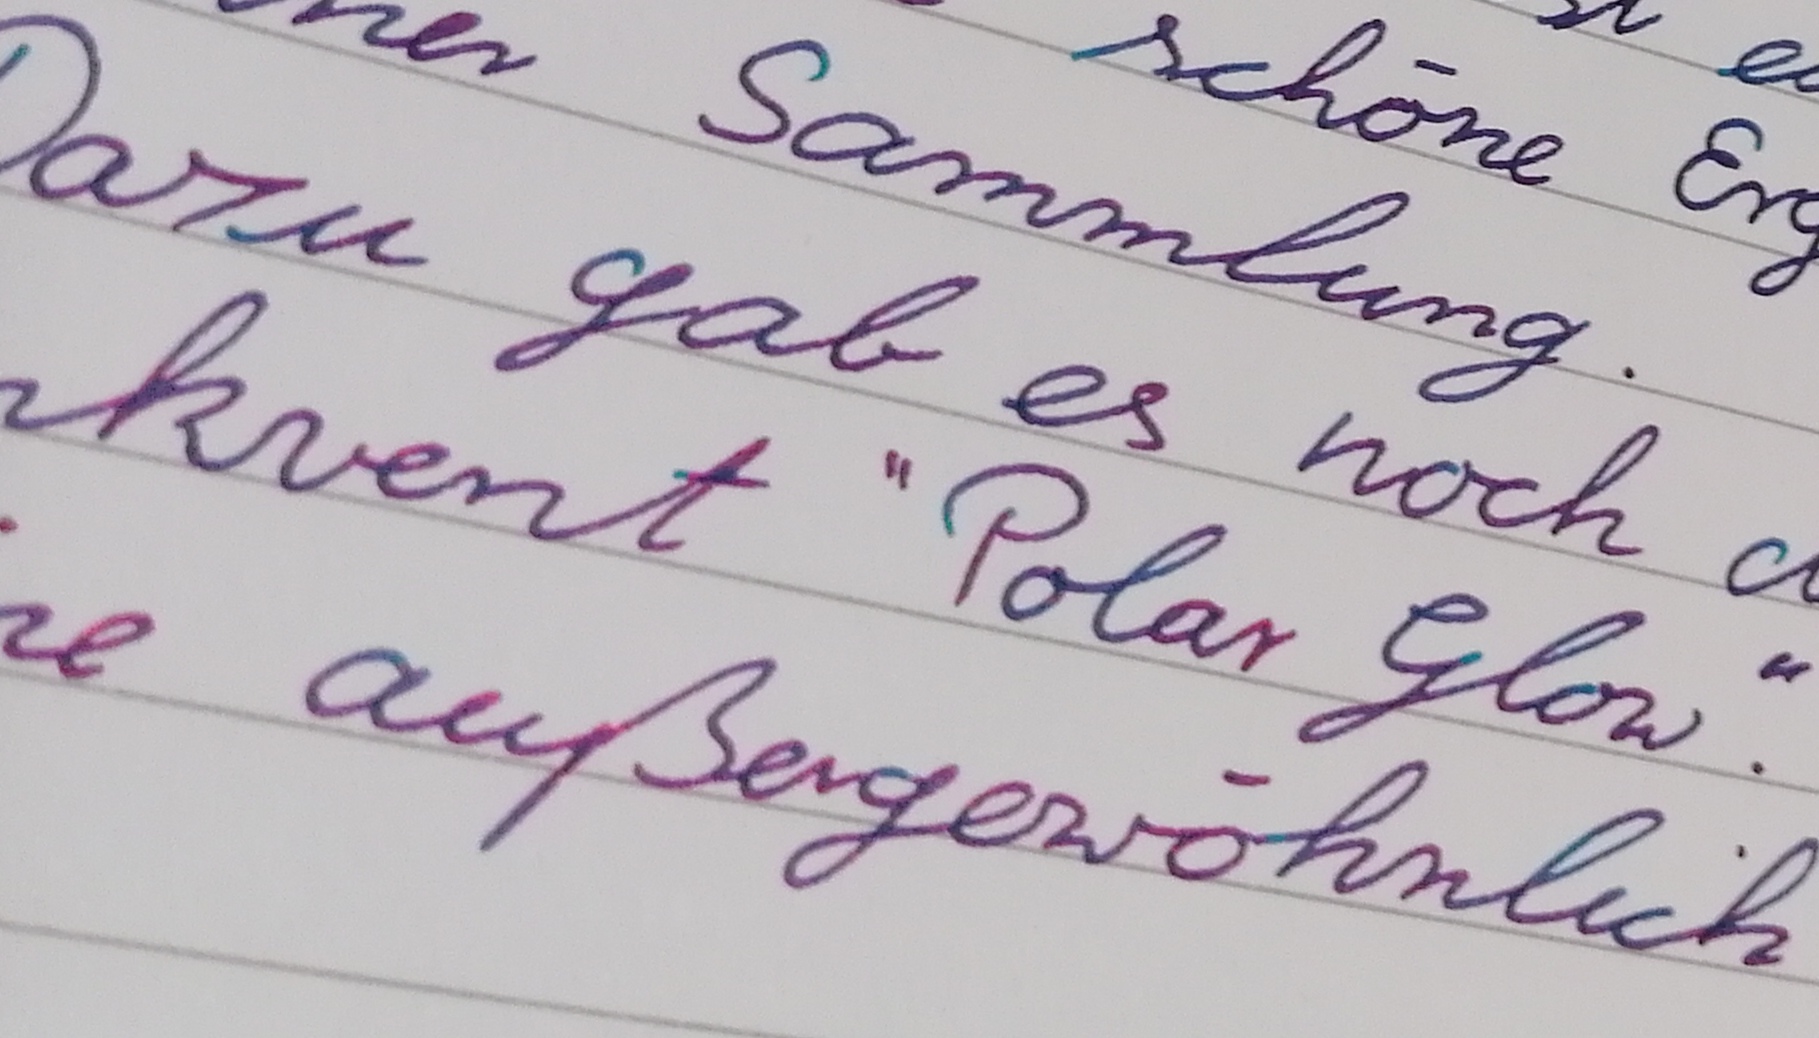 schöne Erg
ner Sammlung.
Dazu gab es noch d
nkvent "Polar Glow".
re außergewöhnlich